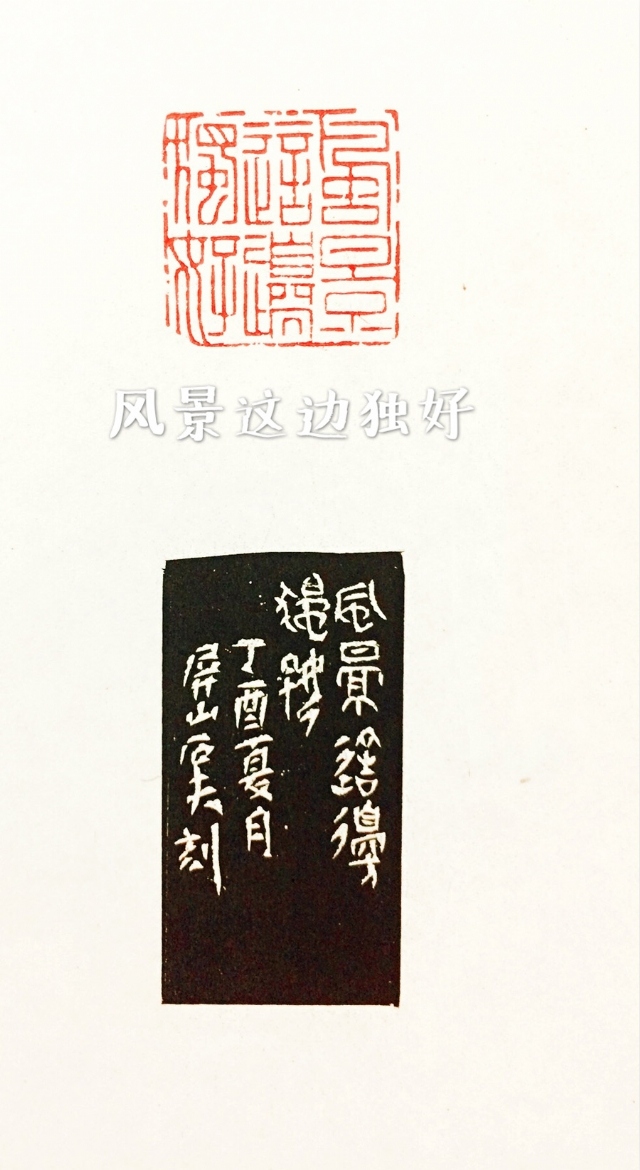 風景
這邊
獨好
风景这边独好
風景這邊
獨好
丁酉夏月
屏山 刻